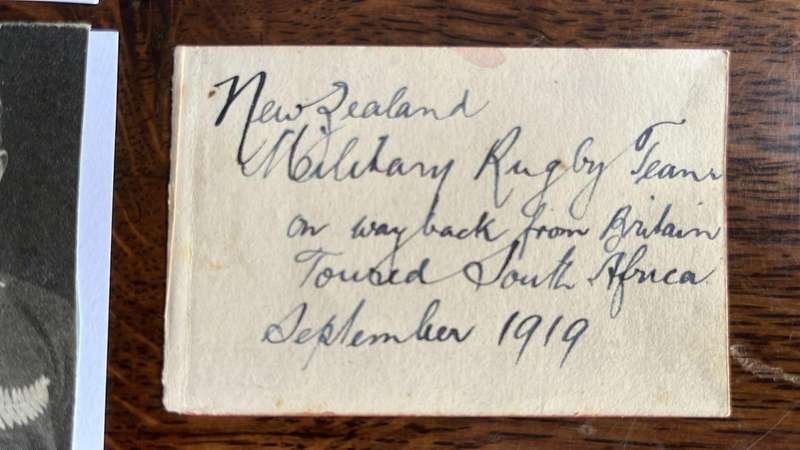 New Zealand
Military Rugby Team
on way back from Britain
Toured South Africa
September 1919